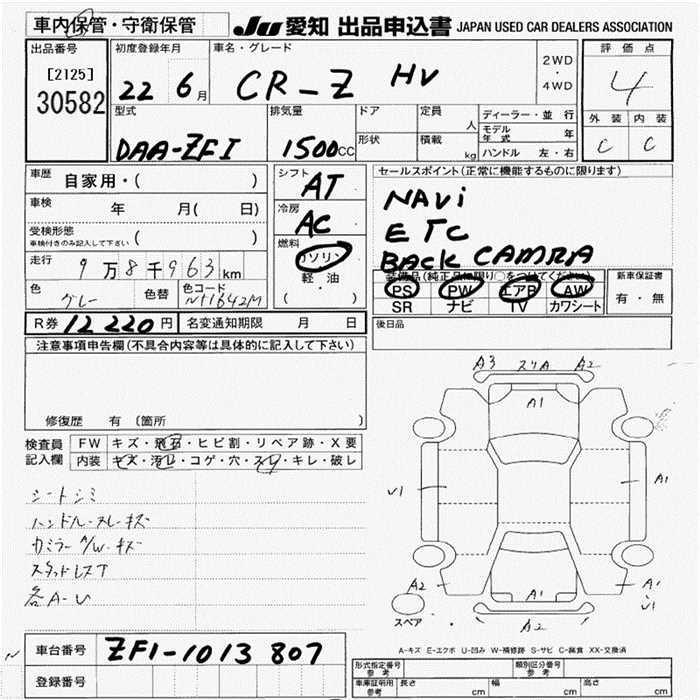 車内保管・守衛保管
JU 愛知 出品申込書 JAPAN USED CAR DEALERS ASSOCIATION
出品番号
[2125]
30582
初度登録年月
22 6月
車名・グレード
CR-Z HV
2WD
・
4WD
評価点
4
外装 内装
C C
型式
DAA-ZF1
排気量
1500cc
ドア
形状
定員 人
積載 kg
ディーラー・並行
モデル年式 年
ハンドル 左・右
車歴 自家用・( )
車検 年 月( 日)
受検形態
車検付きのみ記入して下さい ( )
走行 9万8千963km
色 グレー 色替 色コード NH1B42M
シフト AT
冷房 AC
燃料
ガソリン
・
軽・油
( )
セールスポイント(正常に機能するものに限ります)
NAVi
ETC
BACK CAMRA
装備品(純正品に限り○をつけてください)
PS PW エアB AW
SR ナビ TV カワシート
新車保証書
有・無
R券 12220円 名変通知期限 月 日
後日品
注意事項申告欄(不具合内容等は具体的に記入して下さい)
修復歴 有 (箇所 )
検査員記入欄
FW キズ・飛石・ヒビ割・リペア跡・X要
内装 キズ・汚レ・コゲ・穴・スレ・キレ・破レ
シートシミ
ハンドルスレ・キズ
カミラー A/W.キズ
スタッドレスT
各A-U
A3 スリA A2
A1
U1
A1
A2
A1
A1
U1
A2
スペア
A-キズ E-エクボ U-凹み W-補修跡 S-サビ C-腐食 XX-交換済
車台番号 ZF1-1013807
登録番号
形式指定番号 参考
類別区分番号 参考
車庫証明用 参考 長さ cm 幅 cm 高さ cm